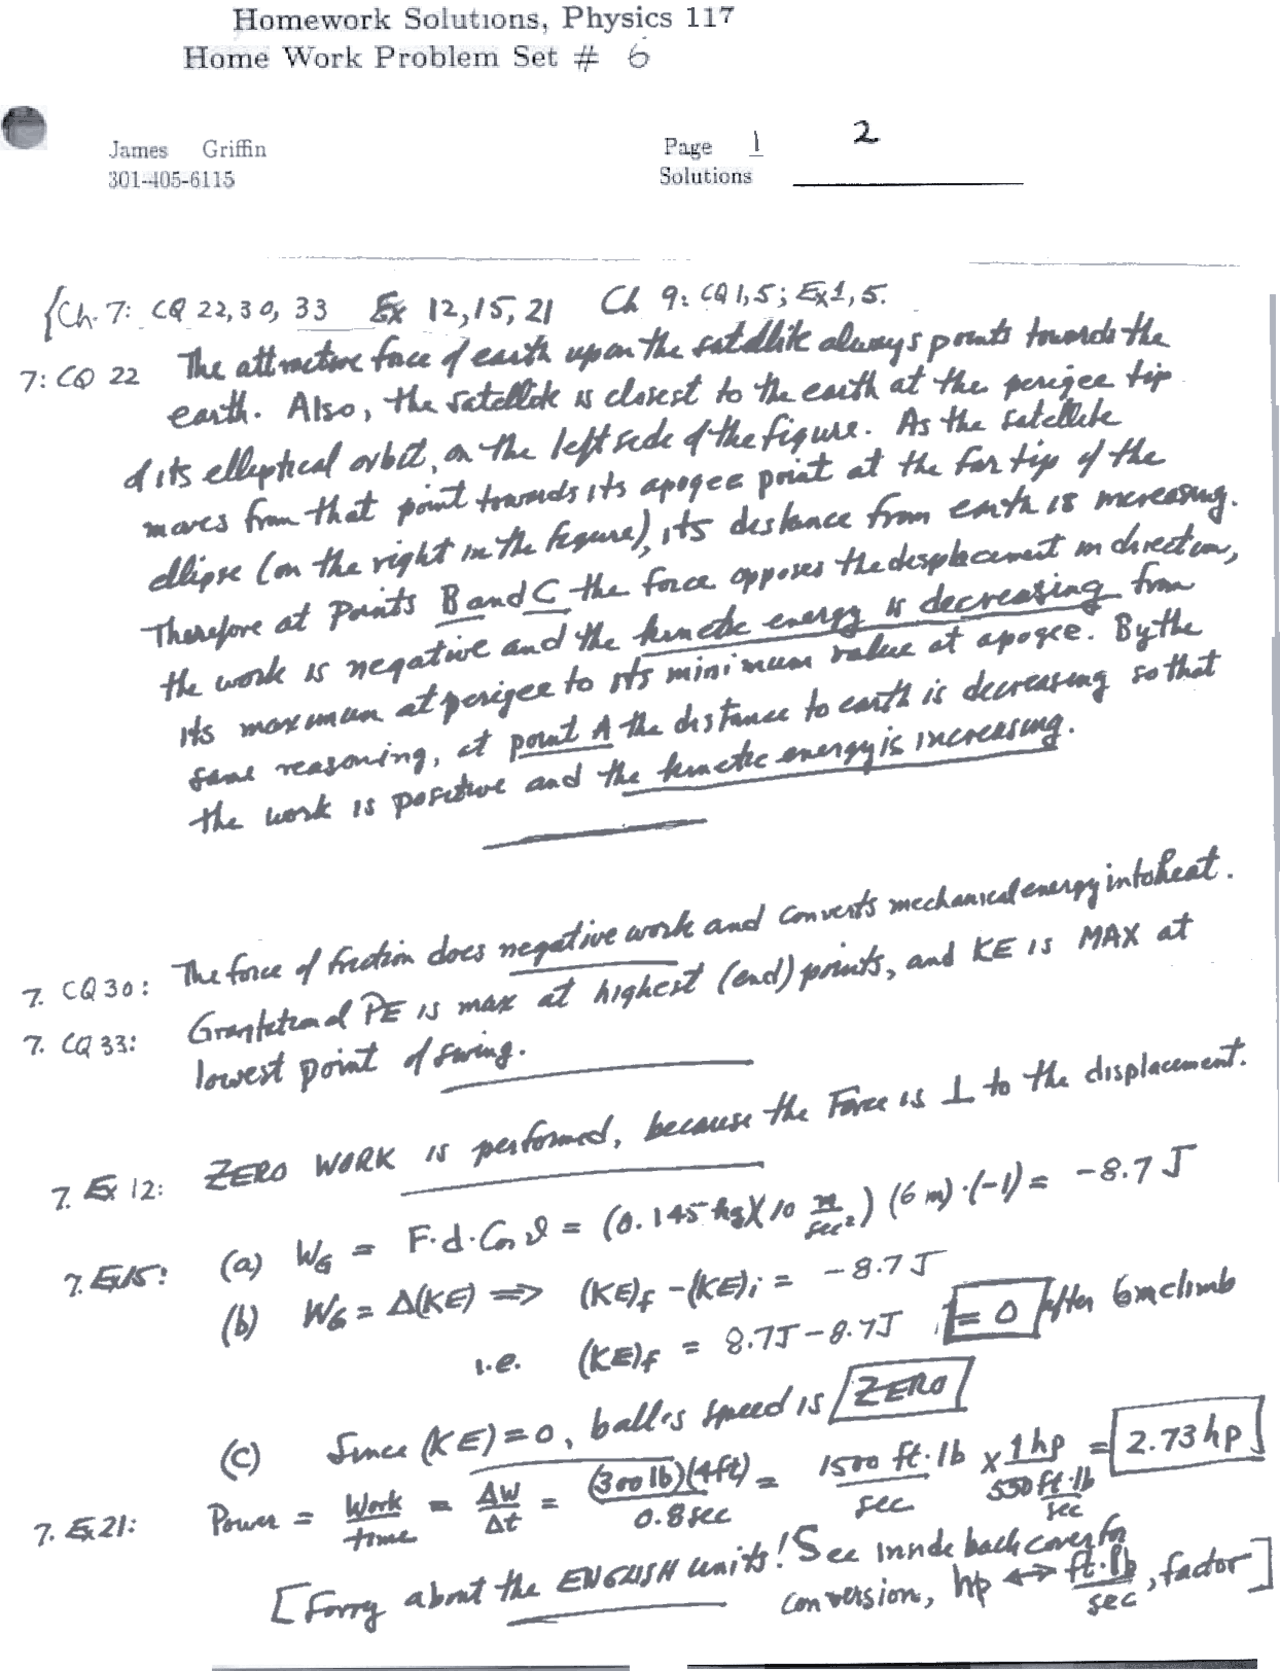 Homework Solutions, Physics 117
Home Work Problem Set # 6
James Griffin
301-405-6115
Page 1 2
Solutions
{Ch. 7: CQ 22, 30, 33 Ex 12, 15, 21 Ch 9: CQ 1, 5; Ex 1, 5.
7: CQ 22 The attractive force of earth upon the satellite always points towards the
earth. Also, the satellite is closest to the earth at the perigee tip
of its elliptical orbit, on the left side of the figure. As the satellite
moves from that point towards its apogee point at the far tip of the
ellipse (on the right in the figure), its distance from earth is increasing.
Therefore at Points B and C the force opposes the desplacement in direction,
the work is negative and the kinetic energy is decreasing from
its maximum at perigee to its minimum value at apogee. By the
same reasoning, at point A the distance to earth is decreasing so that
the work is positive and the kinetic energy is increasing.
7. CQ 30: The force of friction does negative work and converts mechanical energy into heat.
7. CQ 33: Gravitational PE is max at highest (end) points, and KE is MAX at
lowest point of swing.
7. Ex 12: ZERO WORK is performed, because the Force is ⊥ to the displacement.
7. Ex 15: (a) W_G = F·d·Cos ϑ = (0.145 kg)(10 m/sec²) (6 m)·(-1) = -8.7 J
(b) W_G = Δ(KE) ⇒ (KE)_f - (KE)_i = -8.7 J
i.e. (KE)_f = 8.7J - 8.7J = 0 after 6m climb
(c) Since (KE) = 0, ball's speed is ZERO
7. Ex 21: Power = Work/time = ΔW/Δt = (300 lb)(4ft)/0.8 sec = 1500 ft·lb/sec × 1 hp/550 ft·lb/sec = 2.73 hp
[Sorry about the ENGLISH units! See inside back cover for
conversion, hp ↔ ft·lb/sec, factor]